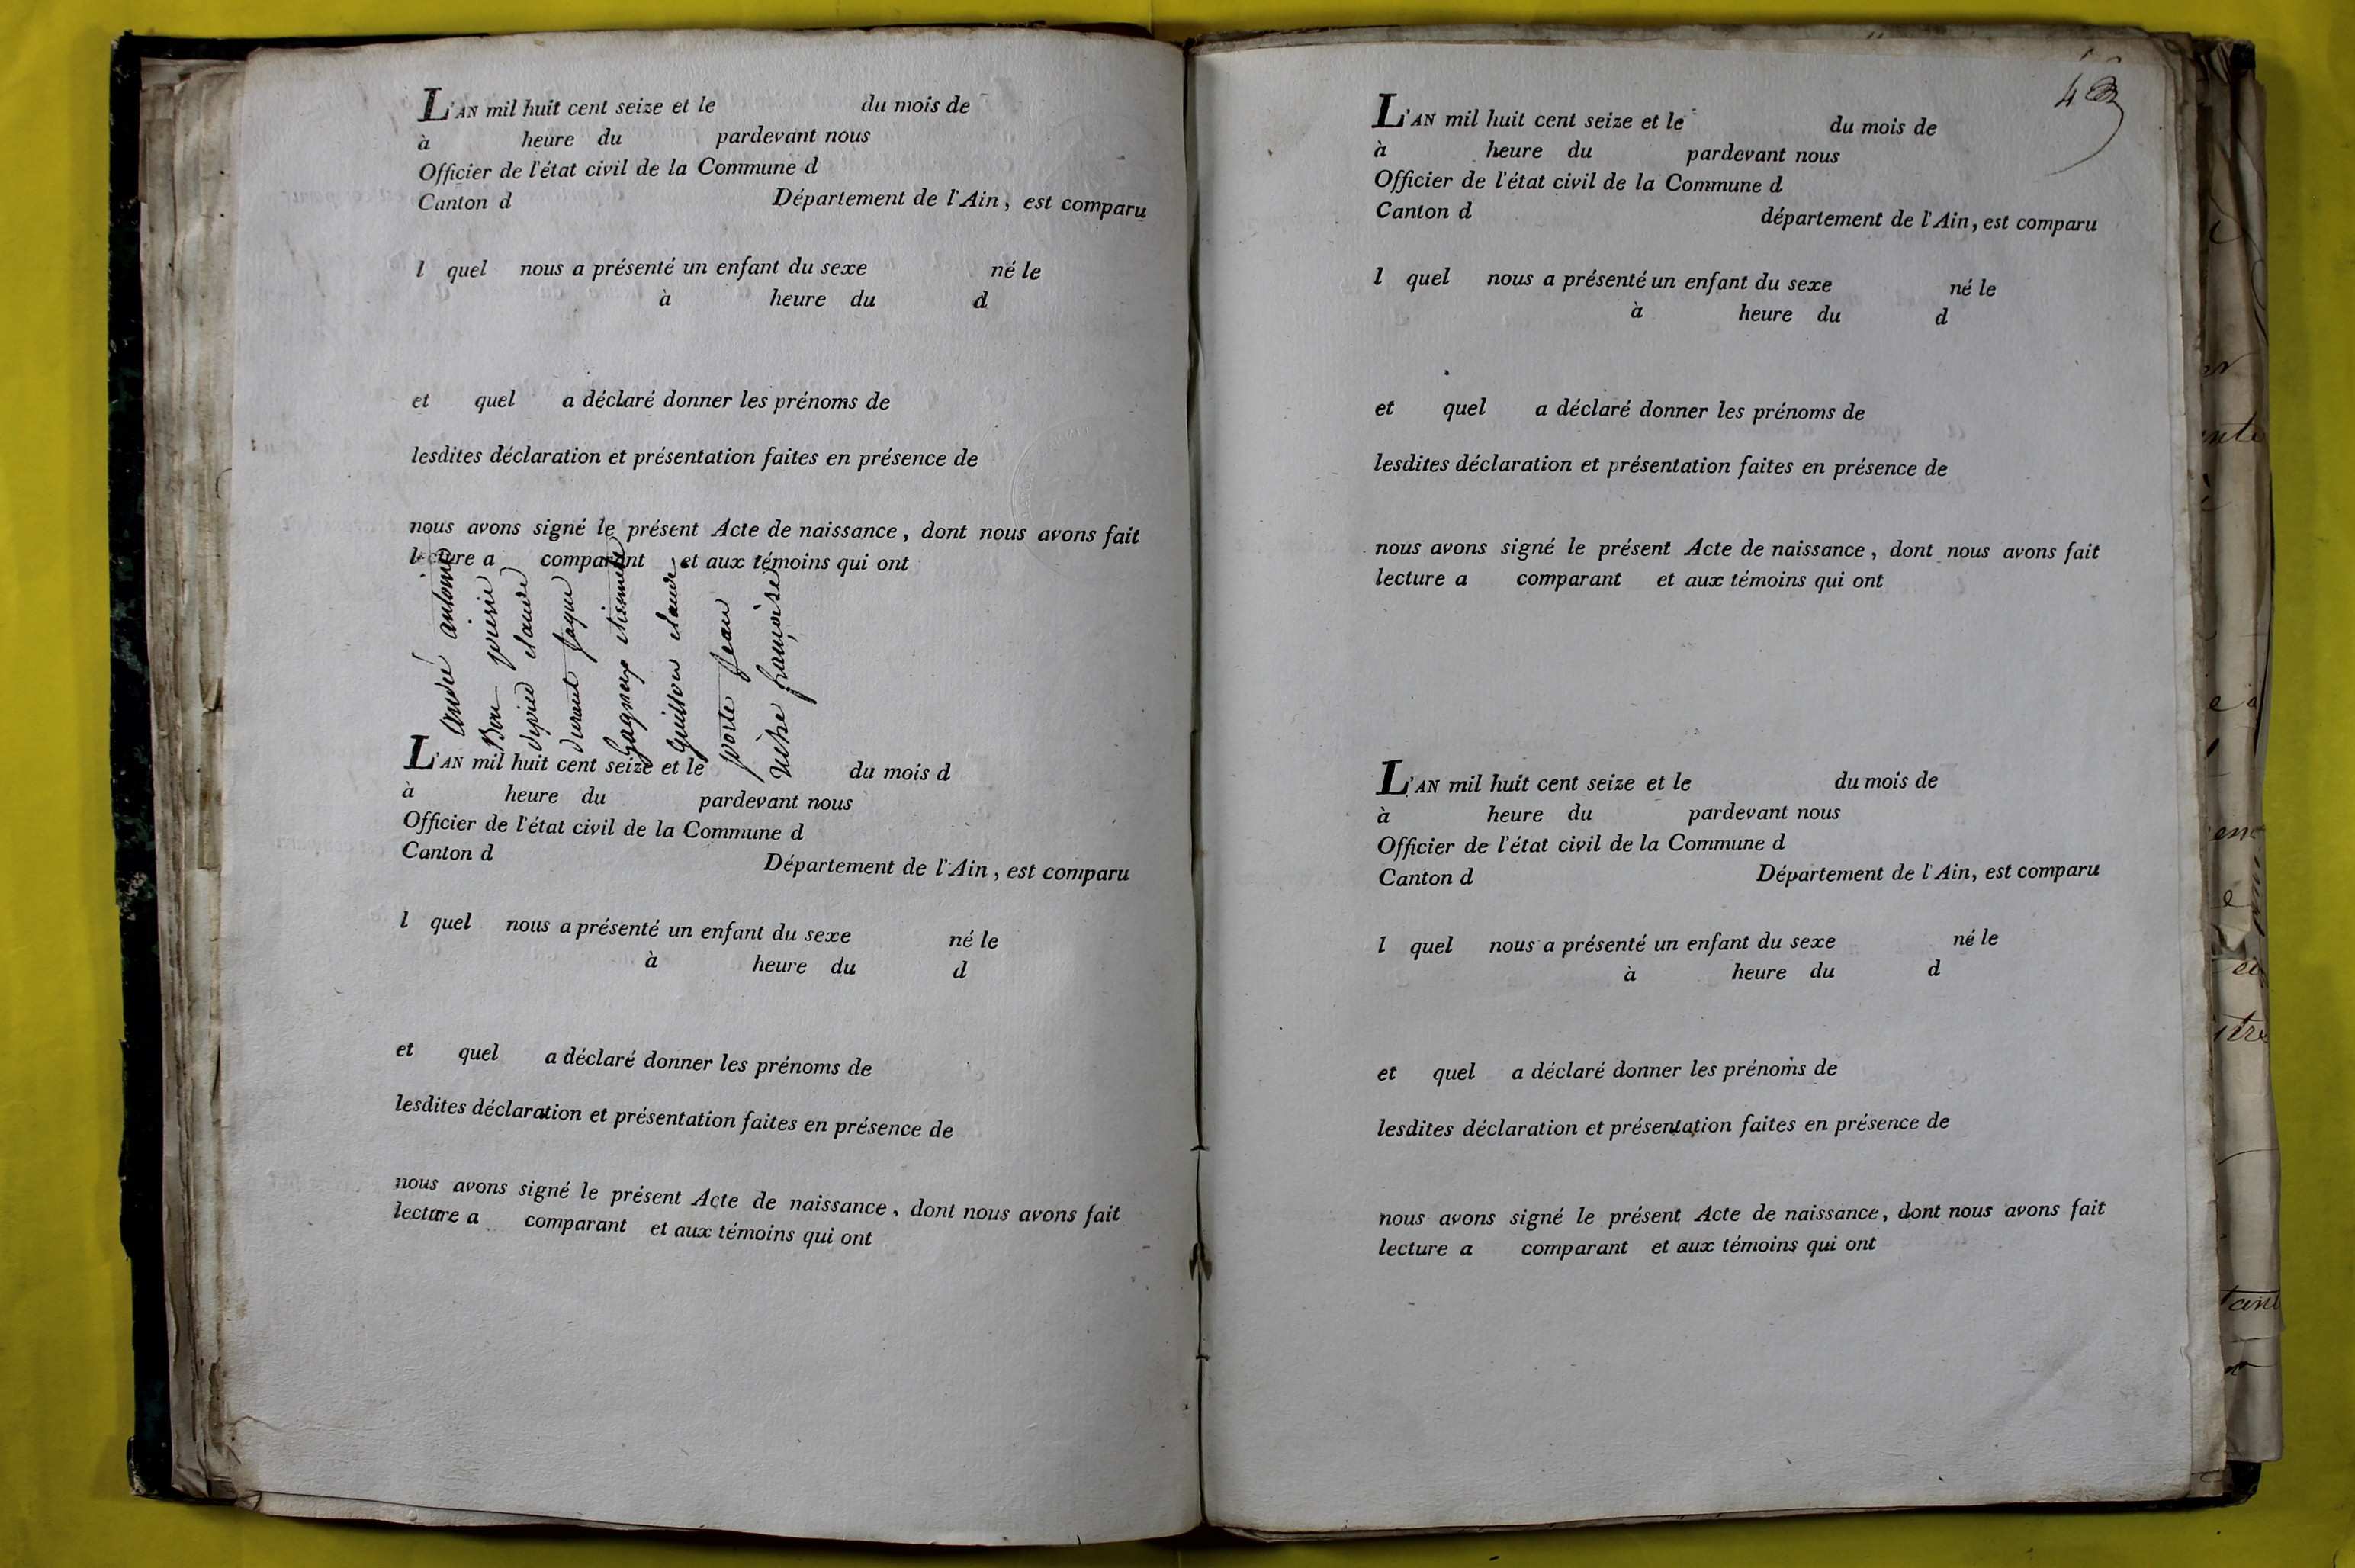 L'AN mil huit cent seize et le du mois de
à heure du pardevant nous
Officier de l'état civil de la Commune d
Canton d Département de l'Ain, est comparu
l quel nous a présenté un enfant du sexe né le
à heure du d
et quel a déclaré donner les prénoms de
lesdites déclaration et présentation faites en présence de
nous avons signé le présent Acte de naissance, dont nous avons fait
lecture a comparant et aux témoins qui ont
andré antoine
Bon
claude
durand jaque
Gagneux etiennete
Guillon claude
porte jean
françoise
L'AN mil huit cent seize et le du mois d
à heure du pardevant nous
Officier de l'état civil de la Commune d
Canton d Département de l'Ain, est comparu
l quel nous a présenté un enfant du sexe né le
à heure du d
et quel a déclaré donner les prénoms de
lesdites déclaration et présentation faites en présence de
nous avons signé le présent Acte de naissance, dont nous avons fait
lecture a comparant et aux témoins qui ont
L'AN mil huit cent seize et le du mois de
à heure du pardevant nous
Officier de l'état civil de la Commune d
Canton d département de l'Ain, est comparu
l quel nous a présenté un enfant du sexe né le
à heure du d
et quel a déclaré donner les prénoms de
lesdites déclaration et présentation faites en présence de
nous avons signé le présent Acte de naissance, dont nous avons fait
lecture a comparant et aux témoins qui ont
L'AN mil huit cent seize et le du mois de
à heure du pardevant nous
Officier de l'état civil de la Commune d
Canton d Département de l'Ain, est comparu
l quel nous a présenté un enfant du sexe né le
à heure du d
et quel a déclaré donner les prénoms de
lesdites déclaration et présentation faites en présence de
nous avons signé le présent Acte de naissance, dont nous avons fait
lecture a comparant et aux témoins qui ont